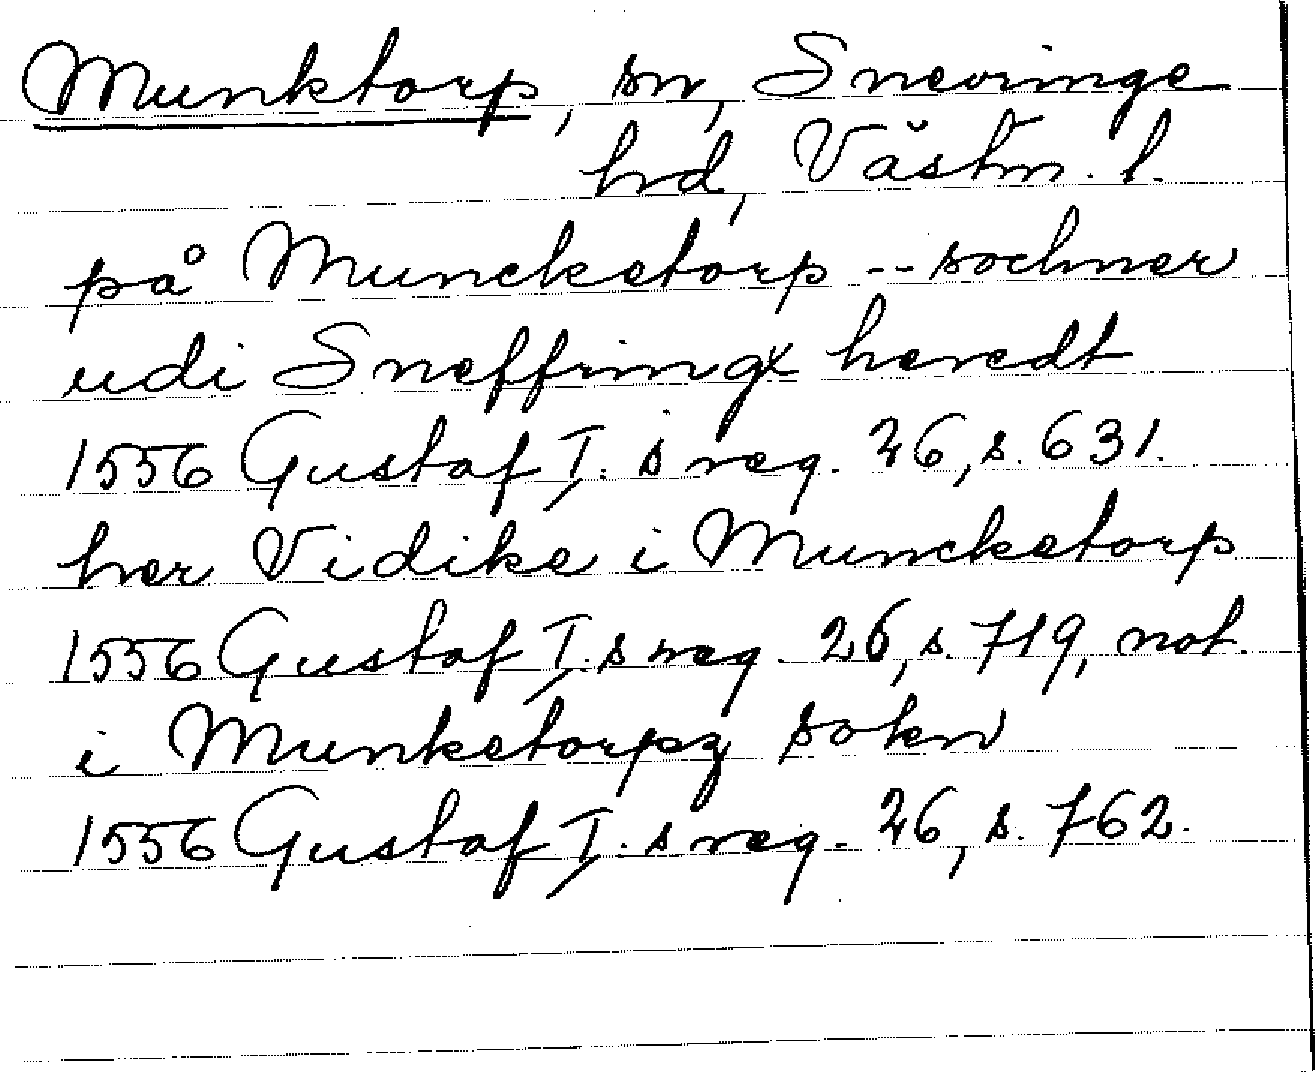 Munktorp, sn, Snevringe
hrd, Västm. l.
på Muncketorp -- sochner
udi Sneffringx heredt
1556 Gustaf I:s reg. 26, s. 631.
her Vidike i Muncketorp
1556 Gustaf I:s reg. 26, s. 719, not.
i Munketorpz sokn
1556 Gustaf I:s reg. 26, s. 762.